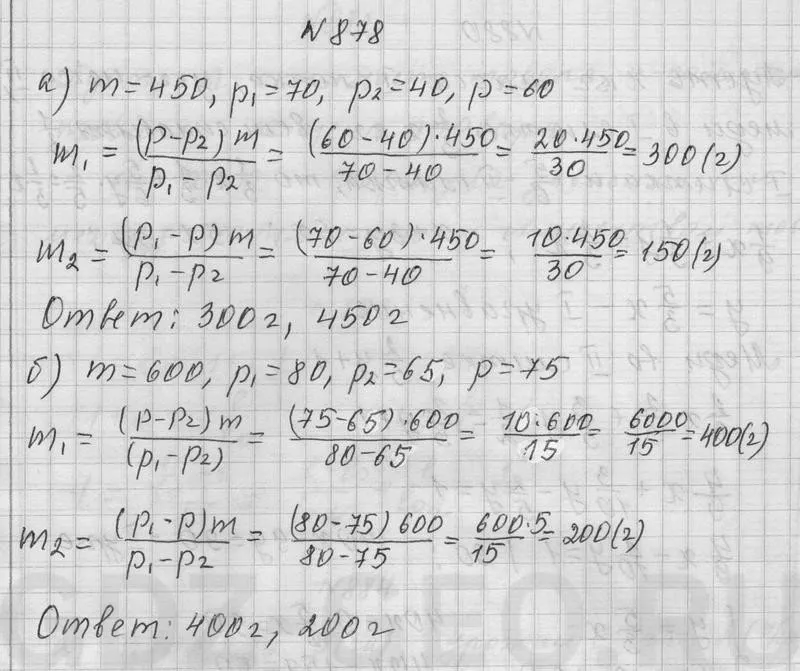 №878
а) m=450, p₁=70, p₂=40, p=60
m₁ = (p-p₂)m / p₁-p₂ = (60-40)·450 / 70-40 = 20·450 / 30 = 300(г)
m₂ = (p₁-p)m / p₁-p₂ = (70-60)·450 / 70-40 = 10·450 / 30 = 150(г)
Ответ: 300г, 450г
б) m=600, p₁=80, p₂=65, p=75
m₁ = (p-p₂)m / (p₁-p₂) = (75-65)·600 / 80-65 = 10·600 / 15 = 6000 / 15 = 400(г)
m₂ = (p₁-p)m / p₁-p₂ = (80-75)600 / 80-75 = 600·5 / 15 = 200(г)
Ответ: 400г, 200г